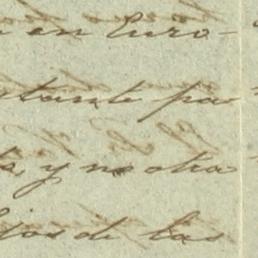 en Euro-
tante por
, y no otra
ios de las